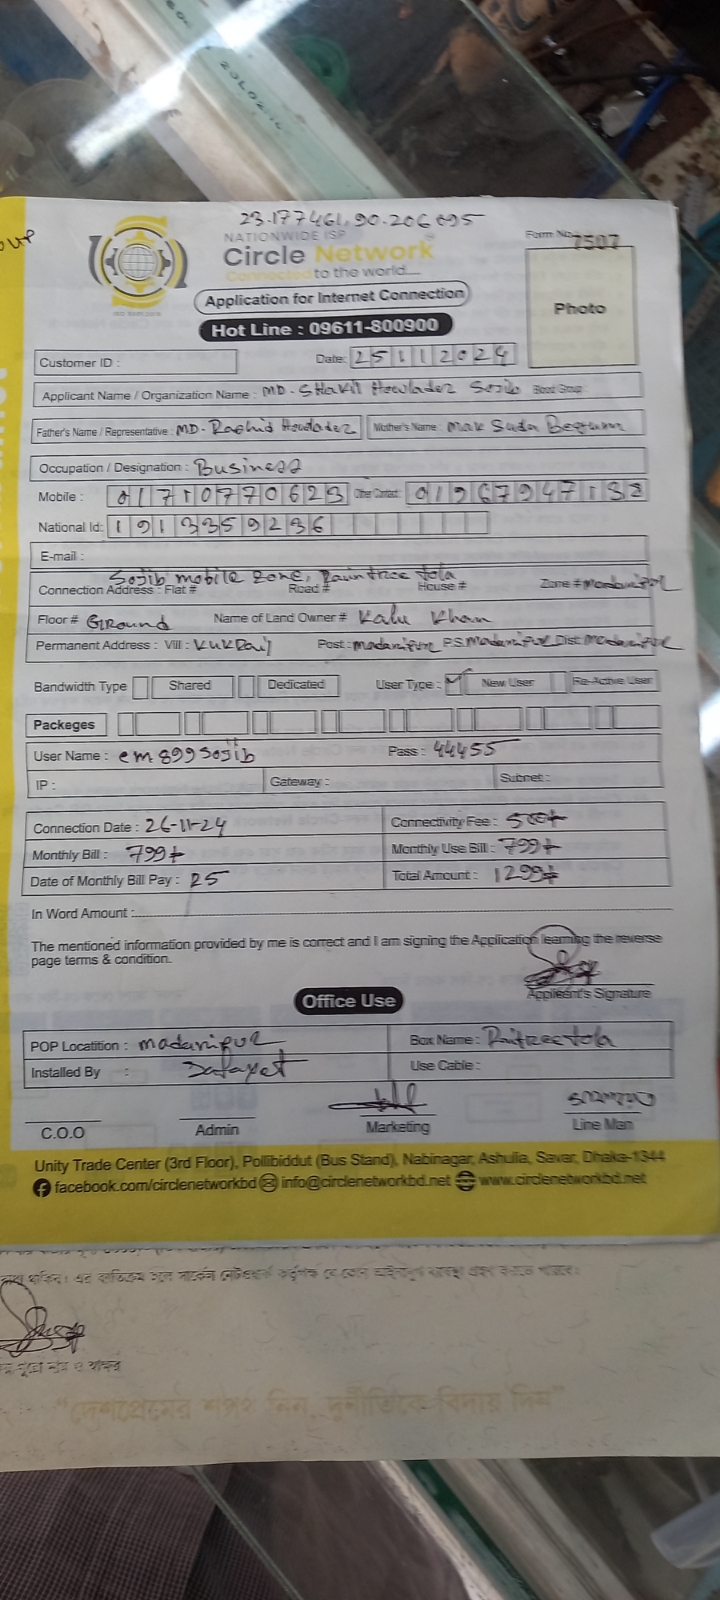 23.177461, 90.206095
NATIONWIDE ISP
Circle Network
Connected to the world....
Form No. 7507
Application for Internet Connection
Photo
Hot Line : 09611-800900
Customer ID :
Date: 25112024
Applicant Name / Organization Name : MD. SHakil Howlader Sojib Blood Group:
Father's Name / Representative : MD. Rashid Howlader Mother's Name : Mak Suda Begum
Occupation / Designation : Business
Mobile : 01710770623 Other Contact: 01967947132
National Id: 1913359236
E-mail :
Sojib mobile zone, Raintree tola
Connection Address : Flat # Road # House # Zone # madaripur
Floor # Ground Name of Land Owner # Kalu Khan
Permanent Address : Vill : Post : madaripur P.S madaripur Dist: madaripur
Bandwidth Type Shared Dedicated User Type : New User Re-Active User
Packeges
User Name : em899sojib Pass : 44455
IP : Gateway : Subnet :
Connection Date : 26-11-24 Connectivity Fee : 500/-
Monthly Bill : 799/- Monthly Use Bill : 799/-
Date of Monthly Bill Pay : 25 Total Amount : 1299/-
In Word Amount :
The mentioned information provided by me is correct and I am signing the Application learning the reverse
page terms & condition.
Applicant's Signature
Office Use
POP Locatition : madaripur Box Name : Raitreetola
Installed By : Use Cable :
C.O.O Admin Marketing Line Man
Unity Trade Center (3rd Floor), Pollibiddut (Bus Stand), Nabinagar, Ashulia, Savar, Dhaka-1344
facebook.com/circlenetworkbd info@circlenetworkbd.net www.circlenetworkbd.net
"দেশপ্রেমের শপথ নিন, দুর্নীতিকে বিদায় দিন"